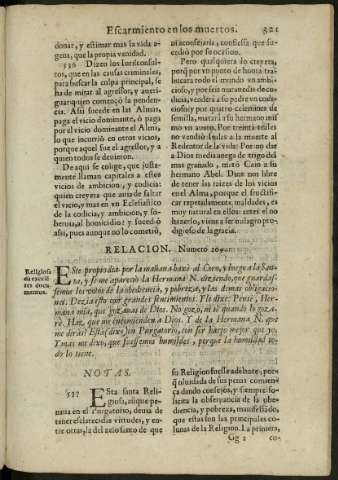 Escarmiento en los muertos. 321
donar, y estimar mas la vida a-
gena, que la propia vanidad.
530 Dizen los Iurisconsul-
tos, que en las causas criminales,
para buscar la culpa principal, se
ha de mirar al agressor, y averi-
guar quien començò la penden-
cia. Assi sucede en las Almas,
paga el vicio dominante, ò paga
por el vicio dominante el Alma,
lo que incurriò en otros vicios,
porque aquel fue el agressor, y a
quien todos se devieron.
De aqui se colige, que justa-
mente llaman capitales a estos
vicios de ambicion, y codicia:
quien creyera que avia de faltar
el vicio, mas en vn Eclesiastico
de la codicia, y ambicion, y so-
bervia, al homicidio? y sucediò
assi, pues aunque no lo cometiò,
ni aconsejaria, confiessa que su-
cediò por su ocasion.
Pero qual quiera lo creyera,
porq̃ por vn punto de honra tra-
bucará todo el mundo vn ambi-
cioso, y por seis maravedis de co-
dicia, venderà a su padre vn codi-
cioso; y por quatro celemines de
semilla, matarà a su hermano mil
vn avaro. Por treinta reales
no vendiò Iudas a la muerte al
Redentor de la vida? Por no dar
a Dios media anega de trigo del
mas granado, matò Cain a su
hermano Abel. Dios nos libre
de tener las raizes de los vicios
en el Alma, porque el fructifi-
car repetidamente, maldades, es
muy natural en ellos: antes el no
hazerlo, viene a ser milagro pro-
digioso de la gracia.
RELACION. Numero 204.
Religiosa
da
res docu-
mentos.
ESte proprio dia por la mañana baxè al Coro, y luego a la San-
ta, y se me apareciò la Hermana N. diziendo, que guardas-
semos los votos de la obediencia, y pobreza, y las demas obligacio-
nes. Dezia esto con grandes sentimientos. Yo dixe: Pensè, Her-
mana mia, que gozavas de Dios. No gozo, ni sè quando le goza-
rè. Haz, que me encomienden a Dios. Y de la Hermana N. que
me dirás? Està (dixo) en Purgatorio, con ser harto mejor que yo.
Y mas me dixo, que fuessemos humildes, porque la humildad to-
do lo tiene.
NOTAS.
531 ESta santa Reli-
giosa, aunque pe-
nava en el Purgatorio, devia de
tener esclarecidas virtudes, y en-
tre otras, la del zelo santo de que
su Religion fuesse adelante; pues
q̃ olvidada de sus penas comien-
ça dando consejos, y siempre so-
licita la observancia de la obe-
diencia, y pobreza, manifestãdo,
que estas son las principales co-
lunas de la Religion. La primera,
Gg 2 co-